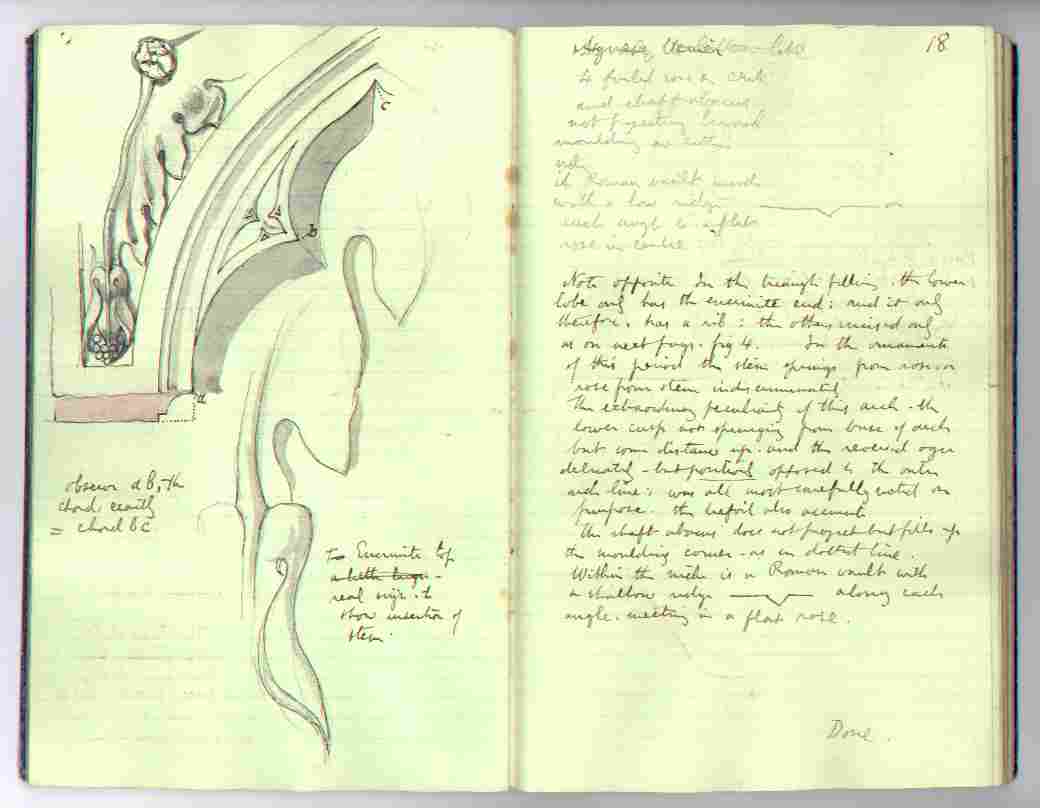 c
b
a
observe a B, the
chord exactly
= chord b c
to Encrinite top
real size. to
show insertion of
stem.
18
to foiled rose
and shaft abacus
not projecting beyond
moulding on either
side
it Roman vault inside
with a low ridge
each angle to a flat
rose in centre
Note opposite In the triangle filling. the lower
lobe only has the encrinite end: and it only
therefore. has a rib: the others incised only
as on next page. fig 4. In the ornaments
of this period the stem springs from rose. or
rose from stem indiscriminately
The extraordinary peculiarity of this arch. the
lower cusp not springing from base of arch
but some distance up. and the reversed ogee
delicately - but positively opposed to the outer
arch line: was all most carefully noted on
purpose. the trefoil also accurate.
The shaft abacus does not project but fills up
the moulding corner - as in dotted line.
Within the niche is a Roman vault with
a shallow ridge along each
angle. meeting in a flat rose.
Done.